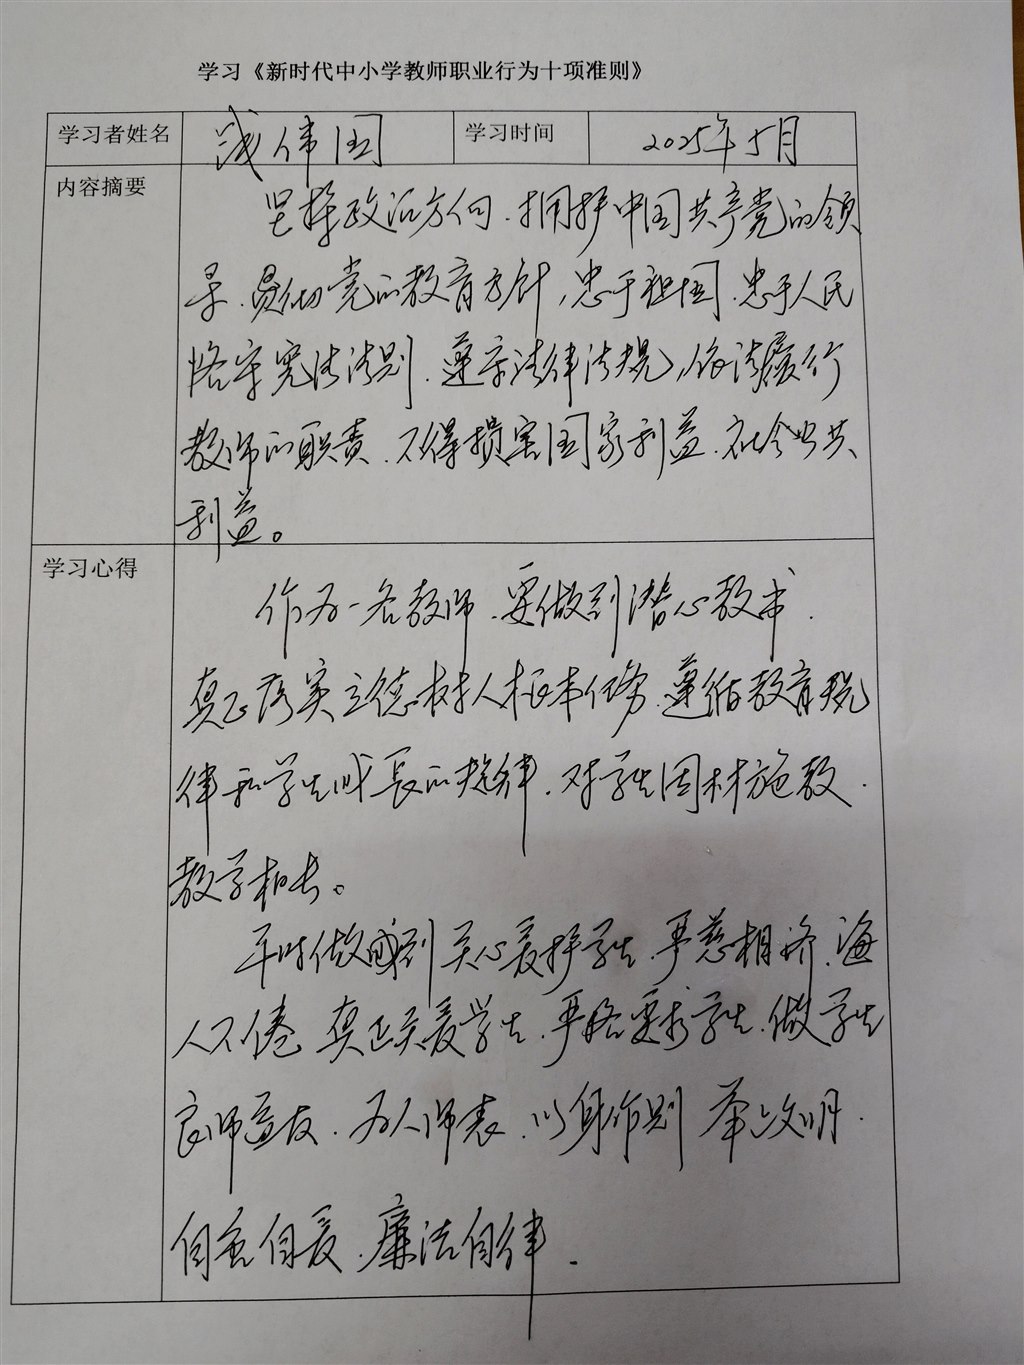 学习《新时代中小学教师职业行为十项准则》
学习者姓名 伟国 学习时间 2025年5月
内容摘要
坚持政治方向.拥护中国共产党的领
导.贯彻党的教育方针,忠于祖国.忠于人民
恪守宪法法则.遵守法律法规,依法履行
教师的职责.不得损害国家利益.社会公共
利益。
学习心得
作为一名教师.要做到潜心教书.
真正落实立德树人根本任务.遵循教育规
律和学生成长的规律.对学生因材施教.
教学相长。
平时做到关心爱护学生.严慈相济.诲
人不倦 真正关爱学生.严格要求学生.做学生
良师益友.为人师表.以身作则 举止文明.
自重自爱.廉洁自律.